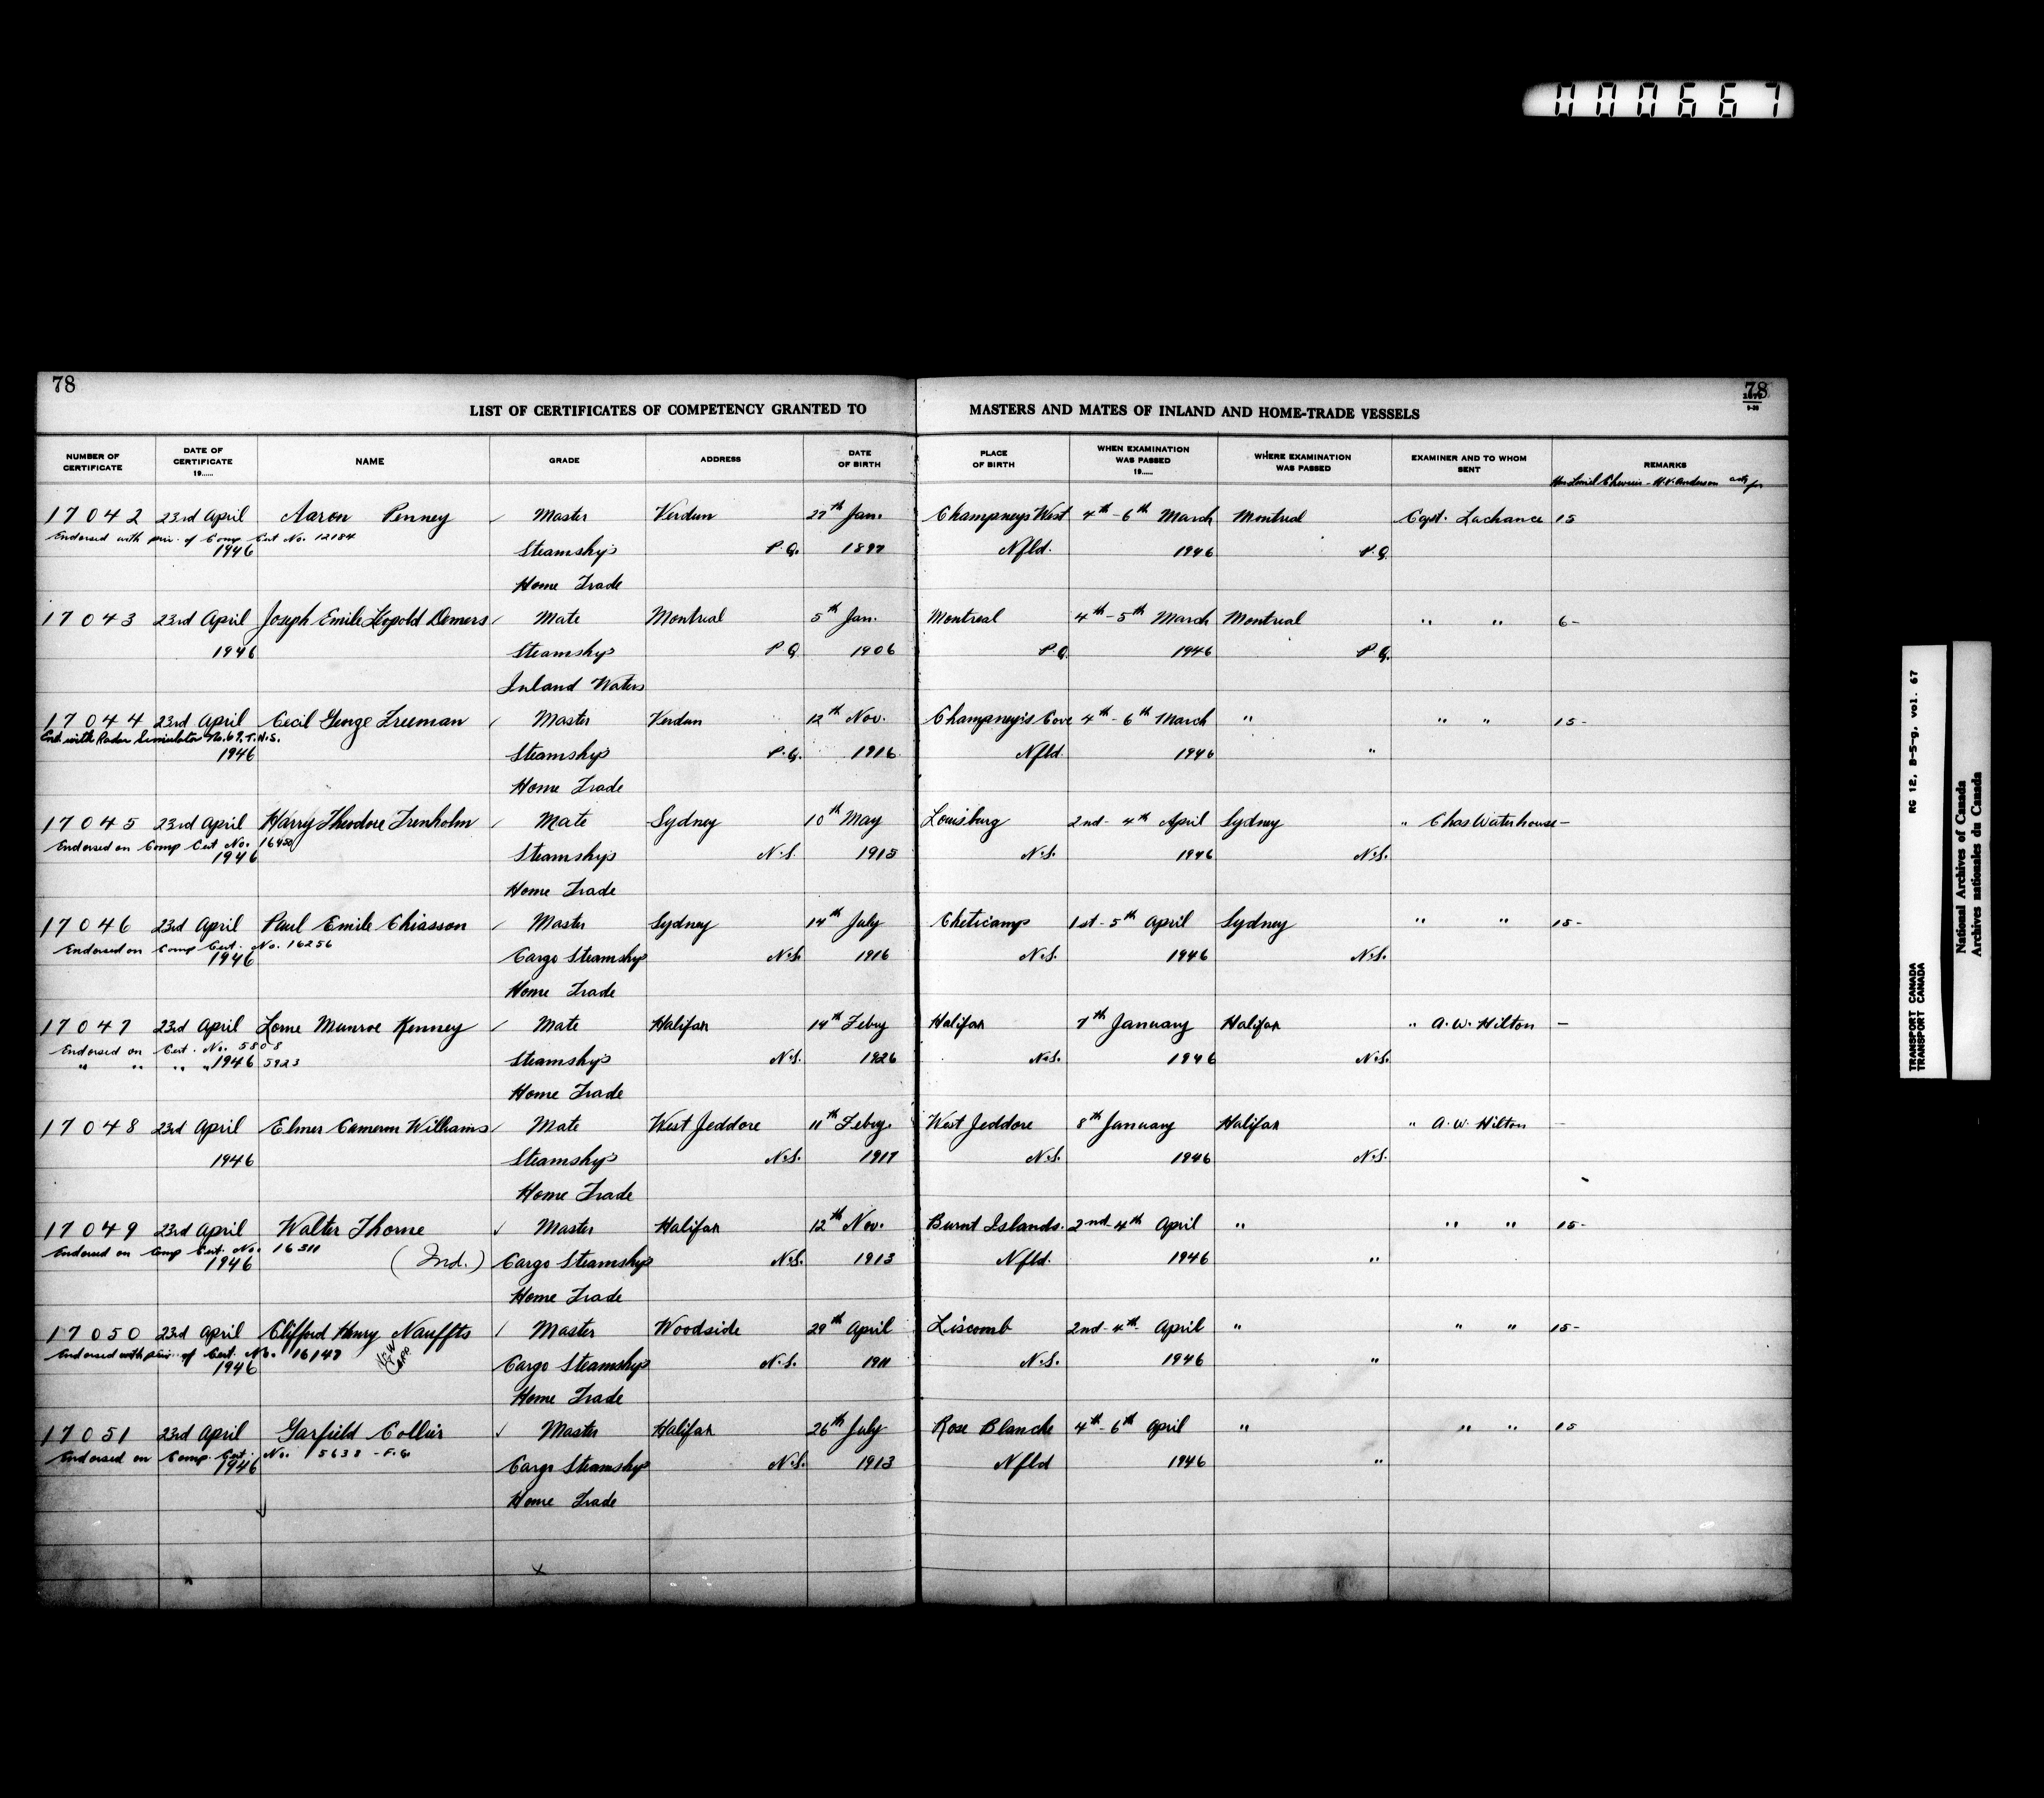 000667
78
78
LIST OF CERTIFICATES OF COMPETENCY GRANTED TO MASTERS AND MATES OF INLAND AND HOME-TRADE VESSELS
NUMBER OF CERTIFICATE DATE OF CERTIFICATE 19...... NAME GRADE ADDRESS DATE OF BIRTH PLACE OF BIRTH WHEN EXAMINATION WAS PASSED 19...... WHERE EXAMINATION WAS PASSED EXAMINER AND TO WHOM SENT REMARKS
17042 23rd April Aaron Penney Master Verdun 27th Jan. Champneys West 4th-6th March Montreal Capt. Lachance 15
Endorsed with priv. of Comp Cert No. 12184
1946 Steamships P.Q. 1897 Nfld. 1946 P.Q.
Home Trade
17043 23rd April Joseph Emile Leopold Demers Mate Montreal 5th Jan. Montreal 4th-5th March Montreal " " 6-
1946 Steamships P.Q 1906 P.Q. 1946 P.Q.
Inland Waters
17044 23rd April Cecil George Freeman Master Verdun 12th Nov. Champney's Cove 4th-6th March " " " 15-
End. with Radar Simulator No. 69. T.N.S.
1946 Steamships P.Q. 1916 Nfld 1946 "
Home Trade
17045 23rd April Harry Theodore Trenholm Mate Sydney 10th May Louisburg 2nd-4th April Sydney " Chas Waterhouse -
Endorsed on Comp Cert No.
1946 Steamships N.S. 1915 N.S. 1946 N.S.
Home Trade
17046 23rd April Paul Emile Chiasson Master Sydney 14th July Cheticamp 1st-5th April Sydney " " 15-
Endorsed on Comp Cert. No. 16256
1946 Cargo Steamships N.S. 1916 N.S. 1946 N.S.
Home Trade
17047 23rd April Lorne Munroe Kenney Mate Halifax 14th Febry Halifax 7th January Halifax " A.W. Hilton -
Endorsed on Cert. No. 5808
" " " " 1946 5923 Steamships N.S. 1926 N.S. 1946 N.S.
Home Trade
17048 23rd April Elmer Cameron Williams Mate West Jeddore 11th Febry. West Jeddore 8th January Halifax " A.W. Hilton -
1946 Steamships N.S. 1917 N.S. 1946 N.S.
Home Trade
17049 23rd April Walter Thorne Master Halifax 12th Nov. Burnt Islands. 2nd-4th April " " " 15-
Endorsed on Comp Cert. No. 16311
1946 Cargo Steamships N.S. 1913 Nfld. 1946 "
Home Trade
17050 23rd April Clifford Henry Nauffts Master Woodside 29th April Liscomb 2nd-4th April " " " 15-
Endorsed with priv. of Cert. No. 16147
1946 Cargo Steamships N.S. 1911 N.S. 1946 "
Home Trade
17051 23rd April Garfield Collier Master Halifax 26th July Rose Blanche 4th-6th April " " " 15
Endorsed on Comp. Cert. No. 15638 - F.G.
1946 Cargo Steamships N.S. 1913 Nfld 1946 "
Home Trade
RG 12, B-5-g, vol. 67
TRANSPORT CANADA
TRANSPORT CANADA
National Archives of Canada
Archives nationales du Canada